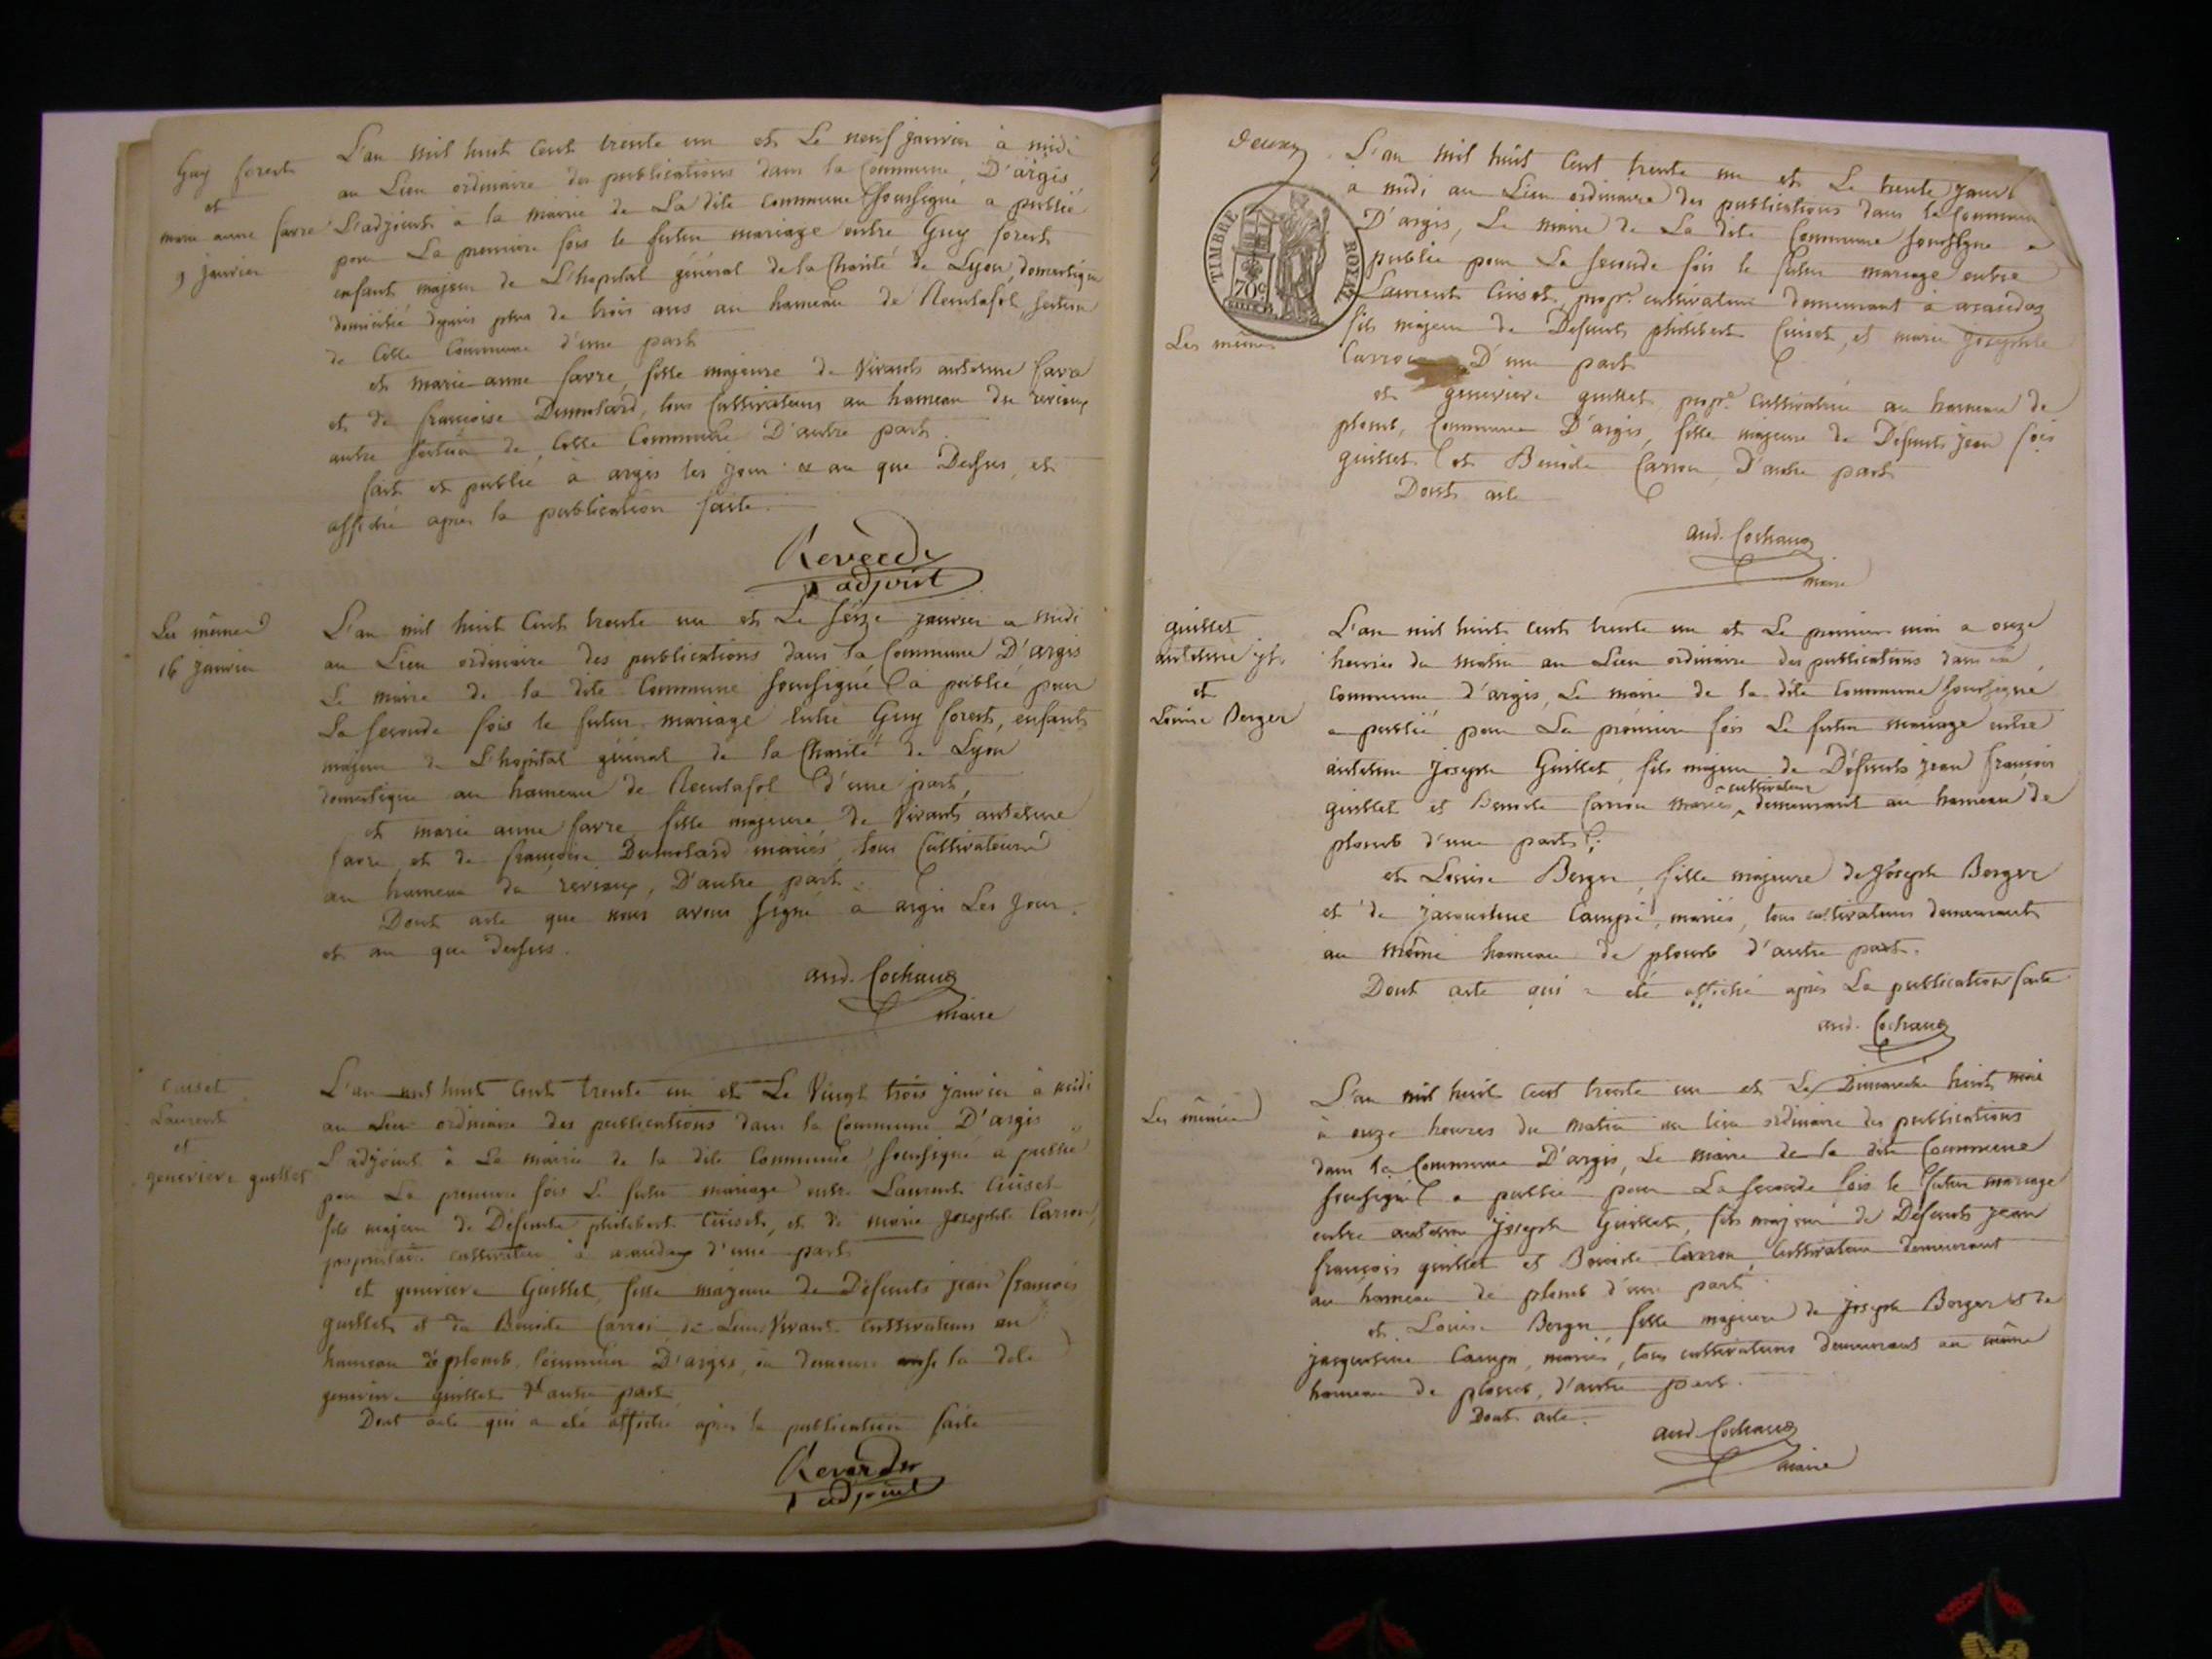 Guy forest
et
marie anne favre
9 janvier
L'an mil huit cent trente un et Le neuf janvier à midi
au Lieu ordinaire des publications dans la Commune D'argis
L'adjoint à la mairie de La dite Commune soussigné a publié
pour La premiere fois le futur mariage entre Guy forest
enfant majeur de L'hopital général de la Charité de Lyon, domestique
domicilié depuis plus de trois ans au hameau de Reculafol, section
de Cette Commune d'une part
et marie anne favre, fille majeure de Vivants anthelme favre
et de françoise Dumolard, tous Cultivateurs au hameau du revioux
autre section de Cette Commune D'autre part.
fait et publié à argis les jour et an que Dessus, et
affiché apres la publication faite.
adjoint
Les mêmes
16 janvier
L'an mil huit Cent trente un et Le seize janvier a midi
au Lieu ordinaire des publications dans la Commune D'argis
Le maire de la dite Commune soussigné a publié pour
La seconde fois le futur mariage entre Guy forest, enfant
majeur de L'hopital général de la Charité de Lyon
domestique au hameau de Reculafol d'une part,
et marie anne favre fille majeure de Vivants anthelme
favre et de françoise Dumolard mariés, tous Cultivateurs
au hameau du revioux, D'autre part.
Dont acte que nous avons signé a argis Les jour
et an que dessus.
and. Cochaux
maire
Cuiset
Laurent
et
genevieve guillet
L'an mil huit Cent trente un et Le Vingt trois janvier à midi
au Lieu ordinaire des publications dans la Commune D'argis
L'adjoint à La mairie de la dite Commune soussigné a publié
pour La premiere fois Le futur mariage entre Laurent Cuiset
fils majeur de Défunts philibert Cuiset, et de marie josephte Carron,
propriétaire cultivateur à d'une part
et genevieve Guillet, fille majeure de Défunts jean françois
guillet et de Benoite Carron, de Leur Vivant Cultivateurs au
hameau de plomb, Commune D'argis, où demeure la dite
genevieve guillet d'autre part
Dont acte qui a été affiché apres la publication faite
adjoint
deux
TIMBRE ROYAL
70c
Les mêmes
L'an mil huit Cent trente un et Le trente janv
à midi au Lieu ordinaire des publications dans la Commune
D'argis, Le maire de La dite Commune soussigné a
publié pour La seconde fois le futur mariage entre
Laurent Cuiset, propre. cultivateur demeurant à
fils majeur de Défunts philibert Cuiset, et marie josephte
Carron D'une part
et genevieve guillet propre. Cultivatrice au hameau de
plomb, Commune D'argis, fille majeure de Défunts jean fois
guillet et Benoite Carron, D'autre part
Dont acte
and. Cochaux
maire
guillet
anthelme jh.
et
Louise Berger
L'an mil huit cent trente un et Le premier mai a onze
heures du matin au Lieu ordinaire des publications dans la
commune d'argis, Le maire de la dite Commune soussigné
a publié pour La première fois Le futur mariage entre
anthelme Joseph Guillet, fils majeur de Défunts jean françois
guillet et Benoite Carron mariés, cultivateur demeurant au hameau de
plomb d'une part.
et Louise Berger, fille majeure de Joseph Berger
et de jacqueline Campé, mariés, tous cultivateurs demeurants
au même hameau de plomb d'autre part.
Dont acte qui a été affiché après La publication faite
and. Cochaux
Les mêmes
L'an mil huit cent trente un et Le Dimanche huit mai
à onze heures du matin au lieu ordinaire des publications
dans la Commune D'argis, Le maire de la dite Commune
soussigné a publié pour La seconde fois le futur mariage
entre anthelme joseph Guillet, fils majeur de Défunts jean
françois guillet et Benoite Carron, Cultivateur demeurant
au hameau de plomb d'une part
et Louise Berger fille majeure de joseph Berger et de
jacqueline Campé, mariés, tous cultivateurs demeurants au même
hameau de plomb, d'autre part.
Dont acte.
and. Cochaux
maire